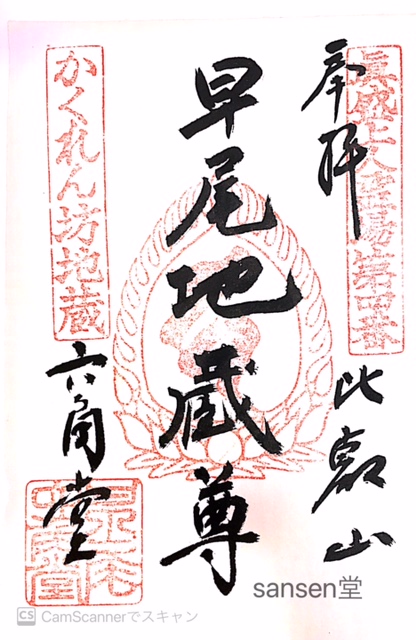 奉拝
眞盛上人霊場第四番
比叡山
早尾地蔵尊
かくれん坊地蔵
六角堂
sansen堂
CS CamScannerでスキャン